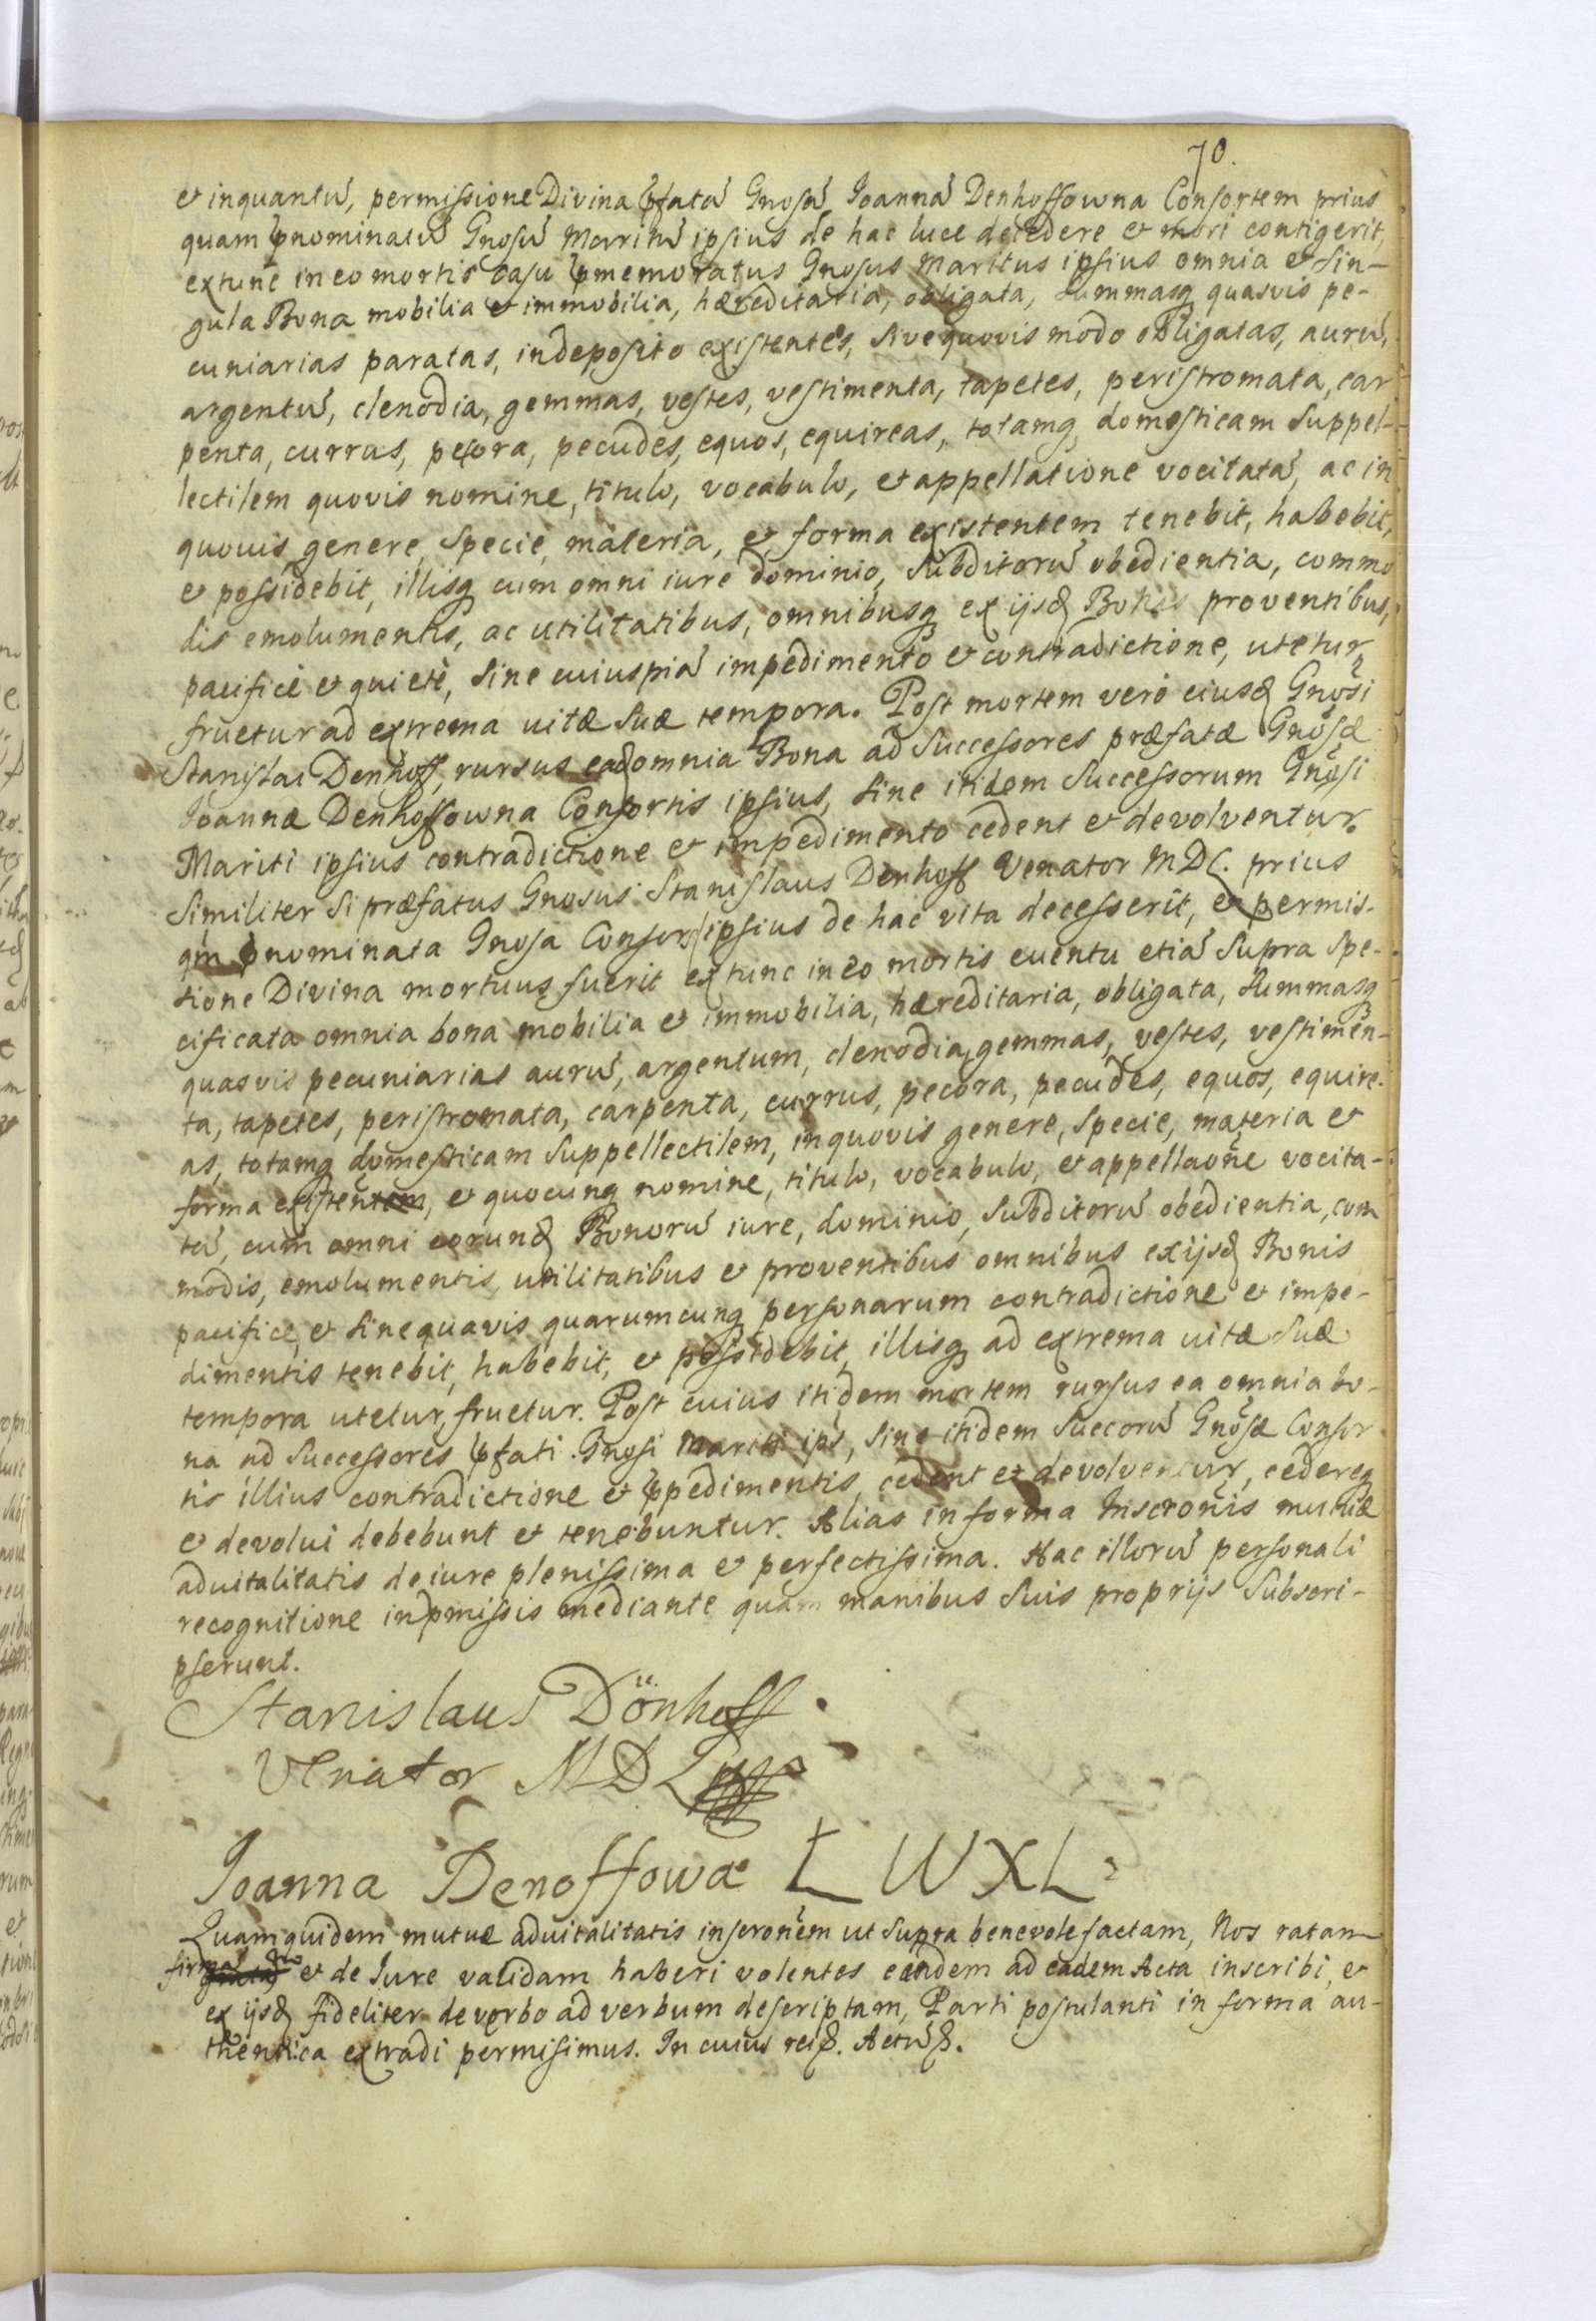 70.
et inquantũ, permissione Divina pfatã Gnosã Joannã Denhoffowna Consortem prius
quam pnominatũ Gnosũ Maritũ ipsius de hac luce decedere et mori contigerit,
extunc in eo mortis casu pmemoratus Gnosus Maritus ipsius omnia et sin-
gula Bona mobilia et immobilia, hæreditaria, obligata, summasq quasvis pe-
cuniarias paratas, in deposito existentes, sive quovis modo obligatas, aurũ,
argentũ, clenodia, gemmas, vestes, vestimenta, tapetes, peristromata, car
penta, currus, pecora, pecudes, equos, equireas, totamq domesticam suppel-
lectilem quovis nomine, titulo, vocabulo, et appellatione vocitatã, ac in
quouis genere, specie, materia, et forma existentem tenebit, habebit,
et possidebit, illisq cum omni iure dominio, subditorũ obedientia, commo
dis emolumentis, ac utilitatibus, omnibusq ex ijsd Bonis proventibus,
pacificè et quietè, sine cuiuspiã impedimento et contradictione, utetur,
fruetur ad extrema uitæ suæ tempora. Post mortem verò eiusd Gnosi
Stanislai Denhoff, rursus ead omnia Bona ad Successores præfatæ Gnosæ
Joannæ Denhoffowna Consortis ipsius, sine itidem Successorum Gnosi
Mariti ipsius contradictione et impedimento cedent et devolventur.
Similiter si præfatus Gnosus Stanislaus Denhoff Venator MDL. prius
qm pnominata Gnosa Consors ipsius de hac vita decesserit, et permis-
sione Divina mortuus fuerit extunc in eo mortis euentu etiã supra spe-
cificata omnia bona mobilia et immobilia, hæreditaria, obligata, summasq
quasvis pecuniarias aurũ, argentum, clenodia, gemmas, vestes, vestimen-
ta, tapetes, peristromata, carpenta, currus, pecora, pecudes, equos, equire-
as, totamq domesticam suppellectilem, in quovis genere, specie, materia et
forma existentem, et quocunq nomine, titulo, vocabulo, et appellaone vocita-
tã, cum omni eorund Bonorũ iure, dominio, subditorũ obedientia, com
modis, emolumentis, utilitatibus et proventibus omnibus ex ijsd Bonis
pacifice, et sine quavis quarumcunq personarum contradictione et impe-
dimentis tenebit, habebit, et possidebit, illisq ad extrema uitæ suæ
tempora utetur, fruetur. Post cuius itidem mortem rursus ea omnia bo-
na ad Successores pfati Gnosi Mariti ips, sine itidem Succorũ Gnosæ Consor
tis illius contradictione et ppedimentis, cedent et devolventur, cedereq
et devolui debebunt et tenebuntur. Alias in forma Inscronis mutuæ
aduitalitatis de iure plenissima et perfectissima. Hac illorũ personali
recognitione in pmissis mediante quam manibus suis proprijs subscri-
pserunt.
Stanislaus Dönhoff
Venator MDL
Joanna Denoffowa Ł W X L
Quamquidem mutuæ aduitalitatis inscronem ut supra benevole factam, Nos ratam
firmã et de Jure validam haberi volentes eandem ad eadem Acta inscribi, et
ex ijsd fideliter de verbo ad verbum descriptam, Parti postulanti in forma au-
thentica extradi permisimus. In cuius rei. Actũ.